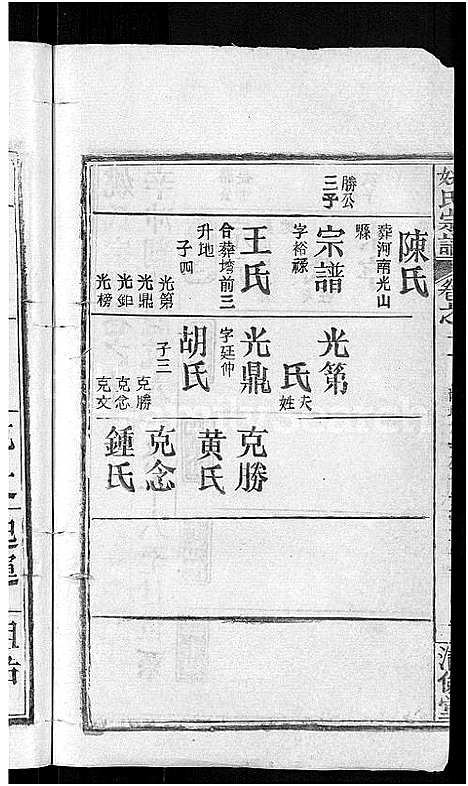 勝公
三子
陳氏
葬河南光山
縣
宗譜
字裕祿
王氏
合葬塆前三
升地
子四
光第
光鼎
光鉅
光榜
光第
氏
夫
姓
光鼎
字廷仲
胡氏
子三
克勝
克念
克文
克勝
黄氏
克念
鍾氏
氏宗譜
卷之